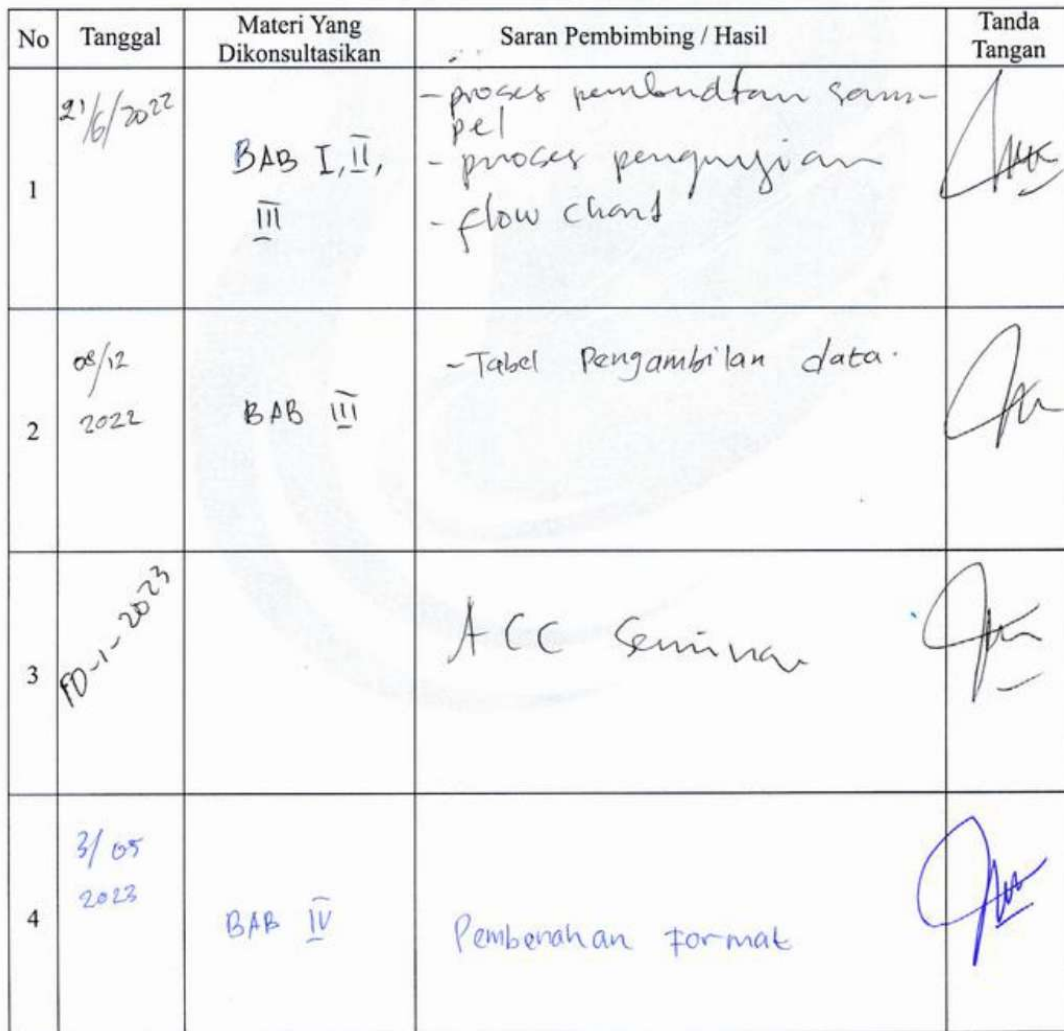 No Tanggal Materi Yang Dikonsultasikan Saran Pembimbing / Hasil Tanda Tangan
1
21/6/2022
BAB I, II,
III
- proses pembuatan sam-
pel
- proses pengujian
- flow chart
2
08/12
2022
BAB III
- Tabel Pengambilan data.
3
-1-2023
ACC Seminar
4
3/05
2023
BAB IV
Pembenahan Format